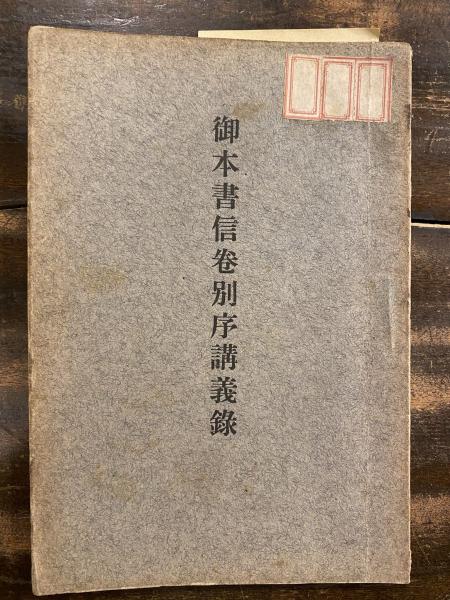 御本書信卷別序講義錄